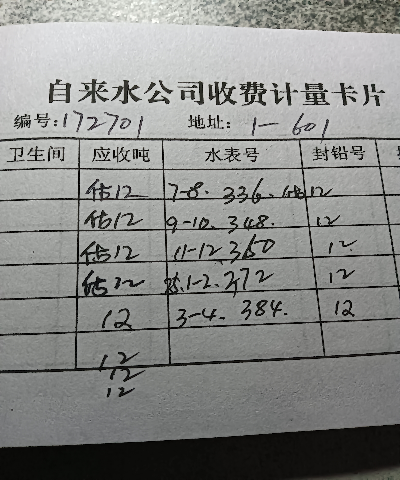 自来水公司收费计量卡片
编号:172701 地址: 1-601
卫生间 应收吨 水表号 封铅号
估12 7-8. 336. 估12
估12 9-10. 348. 12
估12 11-12. 360 12
估12 1-2. 372 12
12 3-4. 384. 12
12
12
12